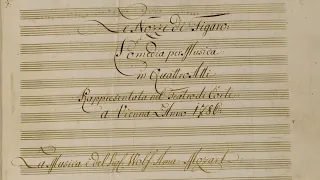 Le Nozze di Figaro.
Comedia per Musica
in Quattro Atti
Rappresentata nel Teatro di Corte
a Vienna L'Anno 1786.
La Musica è del Sigr Wolf. Ama. Mozart